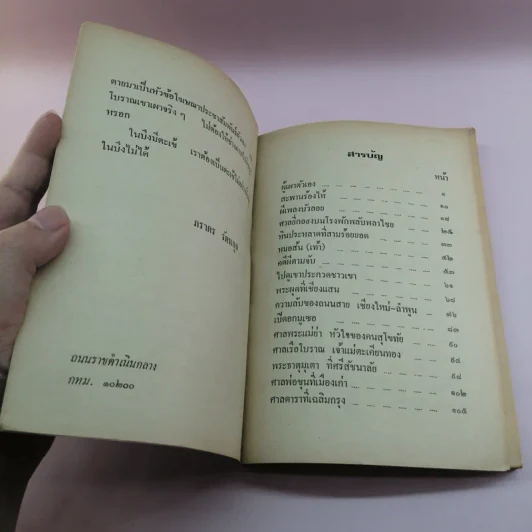 ตายมาเป็นหัวข้อโฆษณาประชาสัมพันธ์
โบราณเขาเผาจริง ๆ ไม่ต้อง
หรอก
ในบึงมีตะเข้ เราต้องเป็นตะเข้
ในบึงไม่ได้
ภราดร
ถนนราชดำเนินกลาง
กทม. ๑๐๒๐๐
สารบัญ
หน้า
ผู้เผาตัวเอง ๑
สะพานร้องไห้ ๑๑
ผีเพลงบัวลอย ๑๘
ศาลถีกลองบนโรงพักพลับพลาไชย ๒๕
หินประหลาดที่สามร้อยยอด ๓๓
หมอส้น (เท้า) ๔๒
คดีผีตามจับ ๕๓
ไปดูเขาประกวดชาวเขา ๖๑
พระผุดที่เชียงแสน ๖๘
ความลับของถนนสาย เชียงใหม่-ลำพูน ๗๖
เปิ๊ดอกมูเซอ ๘๓
ศาลพระแม่ย่า หัวใจของคนสุโขทัย ๙๐
ศาลเรือโบราณ เจ้าแม่ตะเคียนทอง ๙๔
พระธาตุมุเตา ที่ศรีสัชนาลัย ๙๘
ศาลพ่อขุนที่เมืองเก่า ๑๐๒
ศาลดาราที่เฉลิมกรุง ๑๐๕